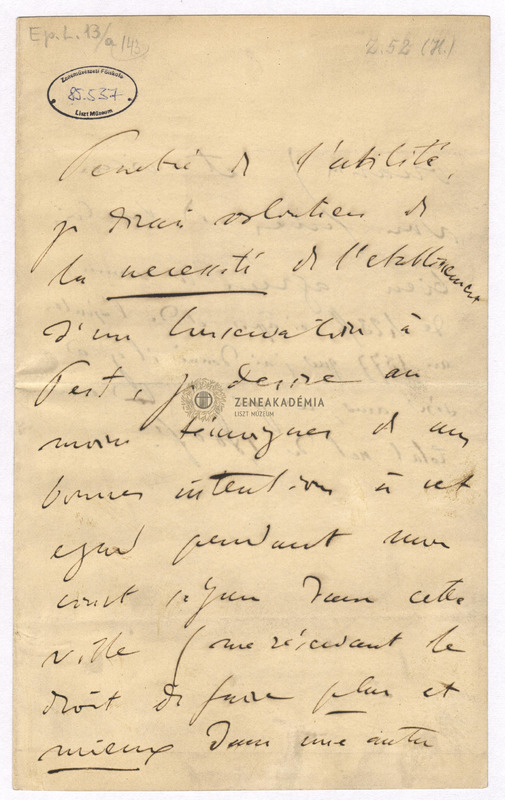 Ep. L. 13/a/43
Z.52 (H.)
Zeneművészeti Főiskola
85.537
Liszt Múzeum
Penétré de l'utilité,
je dirai volontiers de
la necessité de l'etablissement
d'un Conservatoire à
Pest, je desire au
ZENEAKADÉMIA
LISZT MÚZEUM
moins témoigner de mes
bonnes intentions à cet
egard pendant mon
court séjour dans cette
ville (me réservant le
droit de faire plus et
mieux dans une autre